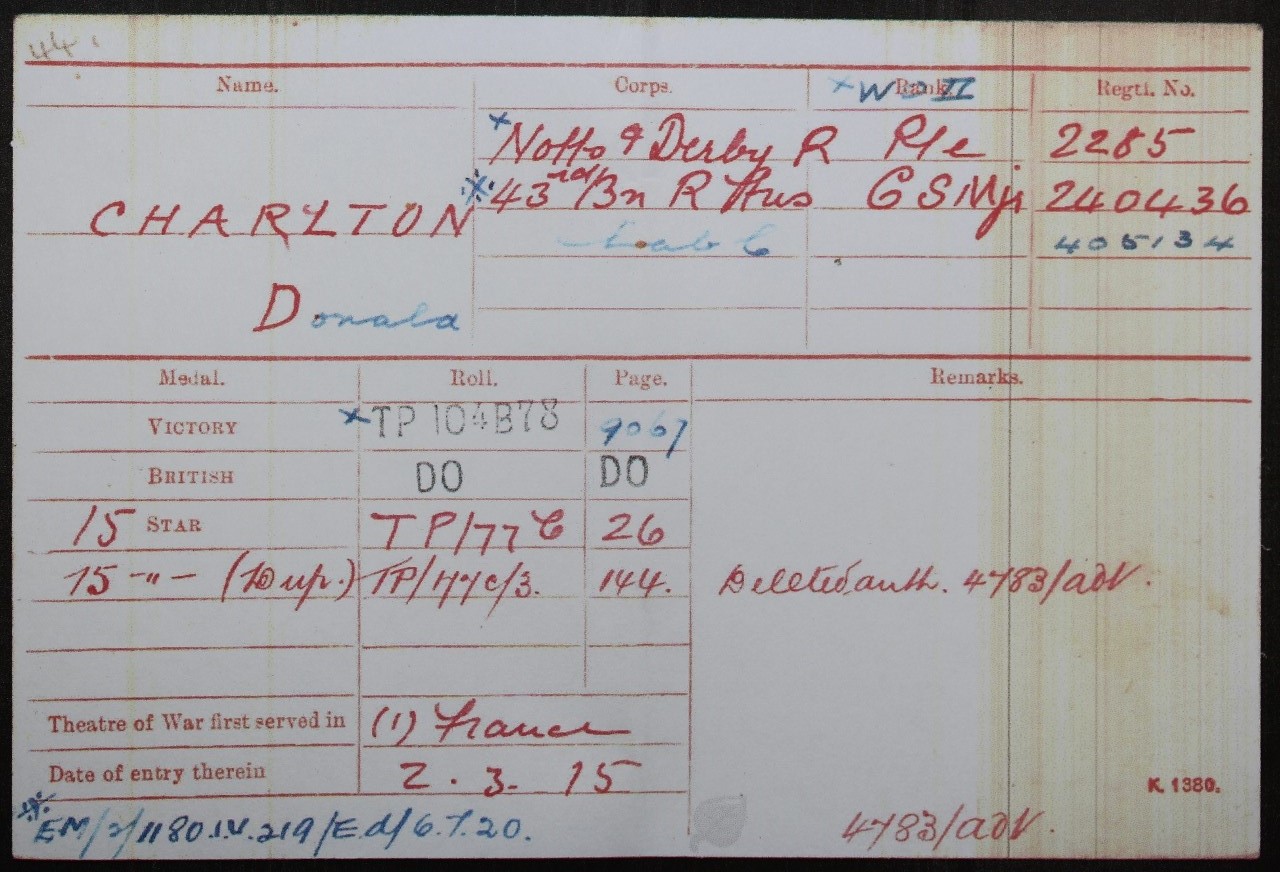 44.
Name. Corps. Rank. × W O II Regtl. No.
× Notts & Derby R Pte 2285
CHARLTON ※ 43rd/Bn R Fus CSMjr 240436
Lab C 405134
Donald
Medal. Roll. Page. Remarks.
VICTORY × TP 104B78 9067
BRITISH DO DO
15 STAR TP/77C 26
15 -"- (Dup.) TP/77C/3. 144. Deleted, auth. 4783/adv.
Theatre of War first served in (1) France
Date of entry therein 2.3.15
K. 1380.
※ EM/2/1180.I.V.219/Ed/6.7.20. 4783/adv.